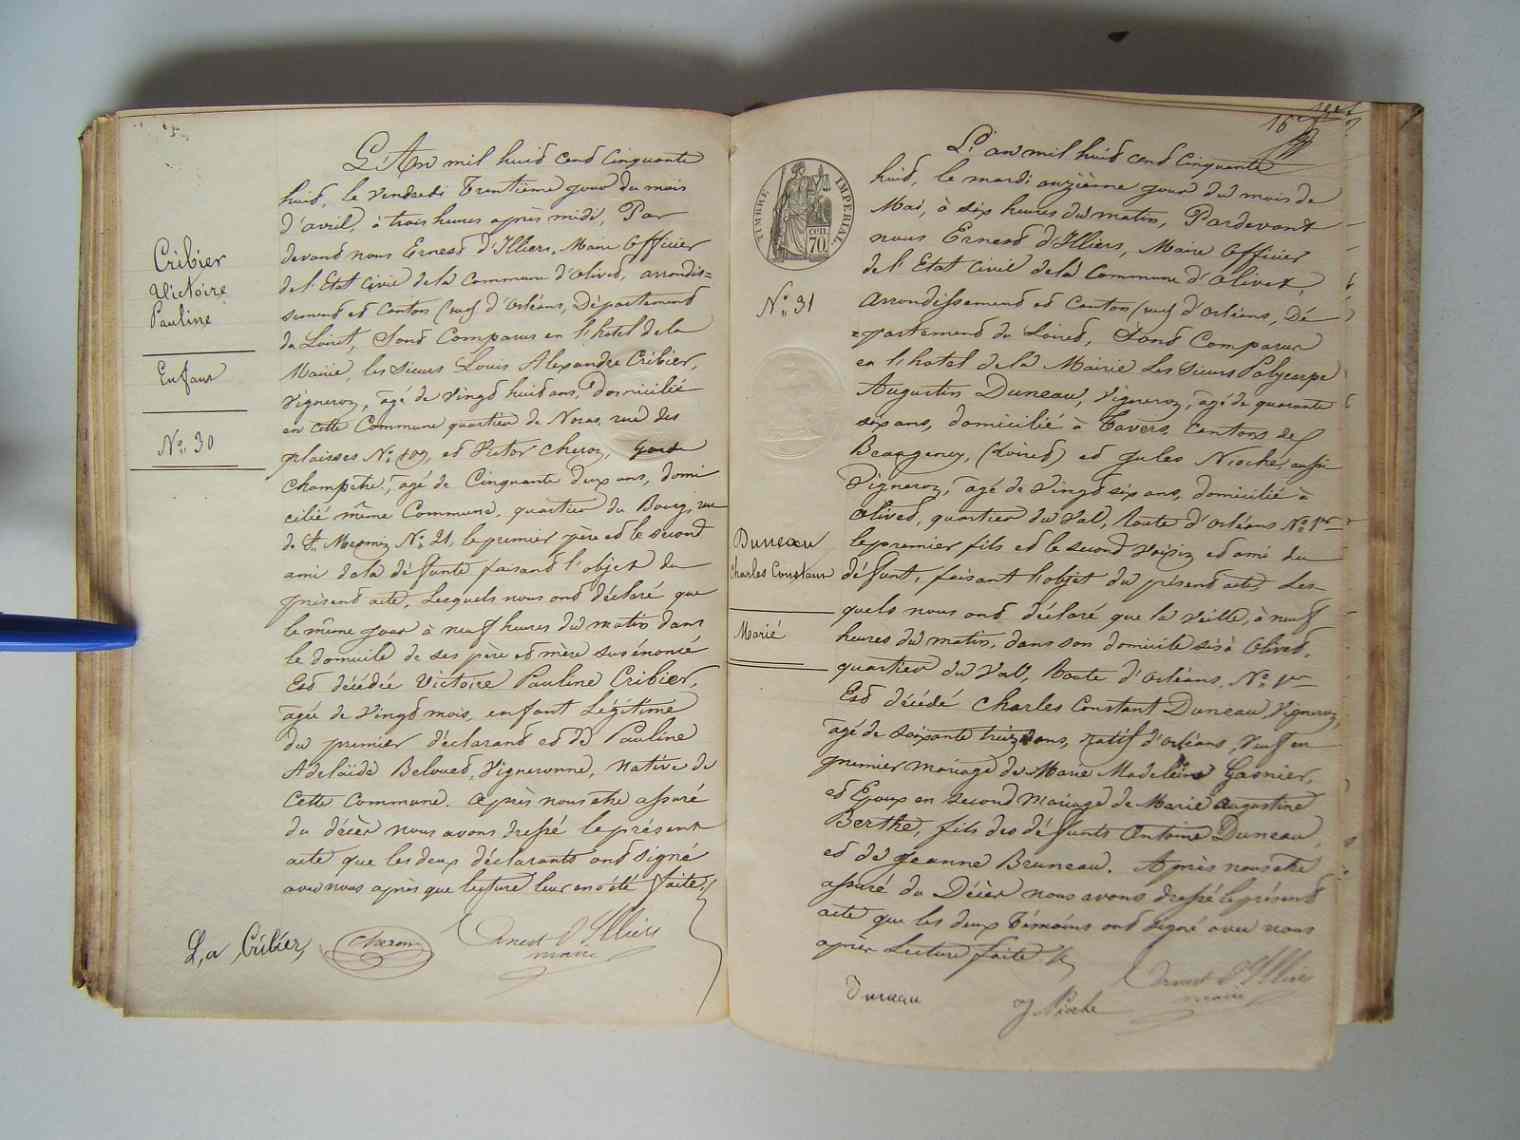 Cribier
Victoire
Pauline
Enfant
N° 30
L'An mil huit cent Cinquante
huit, le vendredi Trentième jour du mois
d'avril, à trois heures après midi, Par
devant nous Ernest d'Illiers, Maire Officier
de l'Etat Civil de la Commune d'Olivet, arrondis=
sement et Canton (sud) d'Orléans, Département
du Loiret, Sont Comparus en l'hôtel de la
Mairie, les Sieurs Louis Alexandre Cribier,
Vigneron, âgé de Vingt huit ans, domicilié
en cette Commune quartier de Noras, rue des
plaisses N° 109, et Victor Cheron, Garde
Champêtre, âgé de Cinquante deux ans, domi
cilié même Commune, quartier du Bourg, rue
de St. Mesmin N° 21, le premier père et le second
ami de la défunte faisant l'objet du
présent acte, Lesquels nous ont déclaré que
le même jour à neuf heures du matin dans
le domicile de ses père et mère susénoncé
Est décédée Victoire Pauline Cribier,
âgée de Vingt mois, enfant Légitime
du premier déclarant et de Pauline
Adélaïde Beloued, Vigneronne, Native de
Cette Commune. Après nous être assuré
du décès nous avons dressé le présent
acte que les deux déclarants ont signé
avec nous après que lecture leur en a été faite.
L, a Cribier
Cheron
Ernest d'Illiers
maire
TIMBRE IMPERIAL
70
N° 31
Duneau
Charles Constant
Marié
L'an mil huit cent Cinquante
huit, le mardi onzième jour du mois de
Mai, à six heures du matin, Pardevant
nous Ernest d'Illiers, Maire Officier
de l'Etat Civil de la Commune d'Olivet,
Arrondissement et Canton (sud) d'Orléans, Dé
=partement du Loiret, Sont Comparus
en l'hotel de la Mairie Les Sieurs Polycarpe
Augustin Duneau, Vigneron, âgé de quarante
six ans, domicilié à Tavers, Canton de
Beaugency, (Loiret) et Jules Nioche, aussi
Vigneron, âgé de Vingt six ans, domicilié à
Olivet, quartier du Val, Route d'Orléans N° 1er
le premier fils et le second voisin et ami du
défunt, faisant l'objet du présent acte, Les-
quels nous ont déclaré que la Veille, à neuf
heures du matin, dans son domicile sis à Olivet,
quartier du Val, Route d'Orléans, N° 1er
Est décédé Charles Constant Duneau, Vigneron,
âgé de soixante treize ans, Natif d'Orléans, Veuf en
premier mariage de Marie Madeleine Gasnier,
et Epoux en second Mariage de Marie Augustine
Berthe, fils des défunts Antoine Duneau,
et de Jeanne Bruneau. Après nous être
assuré du Décès nous avons dressé le présent
acte que les deux Témoins ont signé avec nous
après Lecture faite
Duneau
J Nioche
Ernest d'Illiers
maire